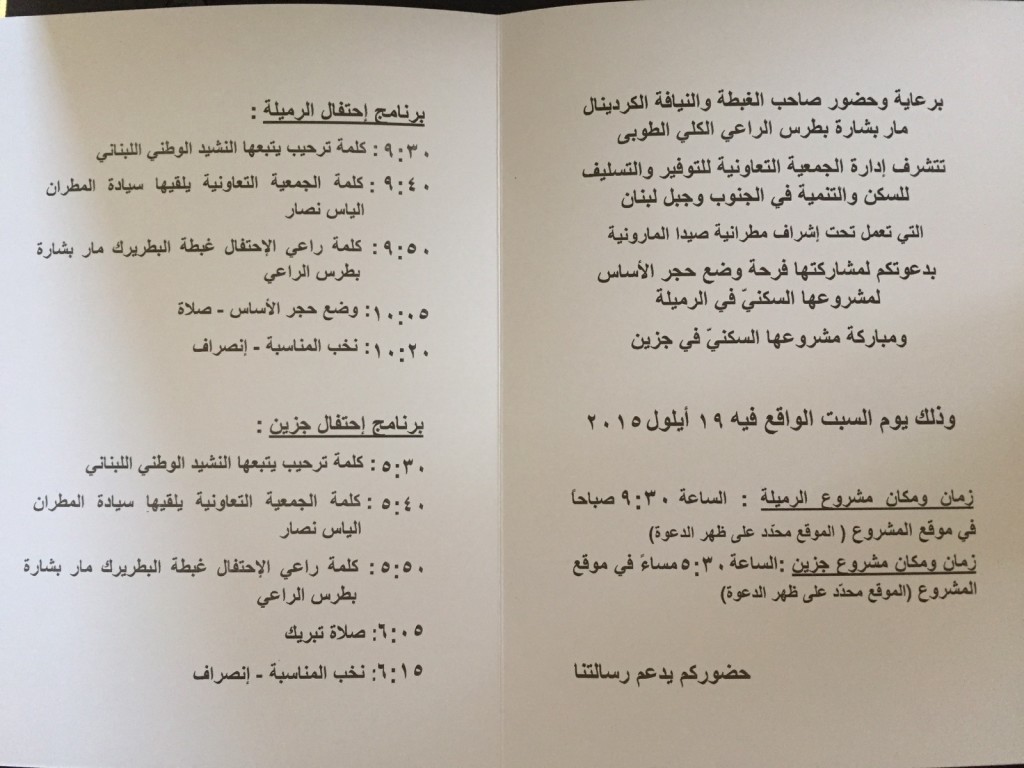 برعاية وحضور صاحب الغبطة والنيافة الكردينال
مار بشارة بطرس الراعي الكلي الطوبى
تتشرف إدارة الجمعية التعاونية للتوفير والتسليف
للسكن والتنمية في الجنوب وجبل لبنان
التي تعمل تحت إشراف مطرانية صيدا المارونية
بدعوتكم لمشاركتها فرحة وضع حجر الأساس
لمشروعها السكنيّ في الرميلة
ومباركة مشروعها السكنيّ في جزين
وذلك يوم السبت الواقع فيه ١٩ أيلول ٢٠١٥
زمان ومكان مشروع الرميلة : الساعة ٩:٣٠ صباحاً
في موقع المشروع ( الموقع محدّد على ظهر الدعوة)
زمان ومكان مشروع جزين :الساعة ٥:٣٠ مساءً في موقع
المشروع (الموقع محدّد على ظهر الدعوة)
حضوركم يدعم رسالتنا
برنامج إحتفال الرميلة :
٩:٣٠ : كلمة ترحيب يتبعها النشيد الوطني اللبناني
٩:٤٠ : كلمة الجمعية التعاونية يلقيها سيادة المطران
الياس نصار
٩:٥٠ : كلمة راعي الإحتفال غبطة البطريرك مار بشارة
بطرس الراعي
١٠:٠٥ : وضع حجر الأساس - صلاة
١٠:٢٠ : نخب المناسبة - إنصراف
برنامج إحتفال جزين :
٥:٣٠ : كلمة ترحيب يتبعها النشيد الوطني اللبناني
٥:٤٠ : كلمة الجمعية التعاونية يلقيها سيادة المطران
الياس نصار
٥:٥٠ : كلمة راعي الإحتفال غبطة البطريرك مار بشارة
بطرس الراعي
٦:٠٥ : صلاة تبريك
٦:١٥ : نخب المناسبة - إنصراف